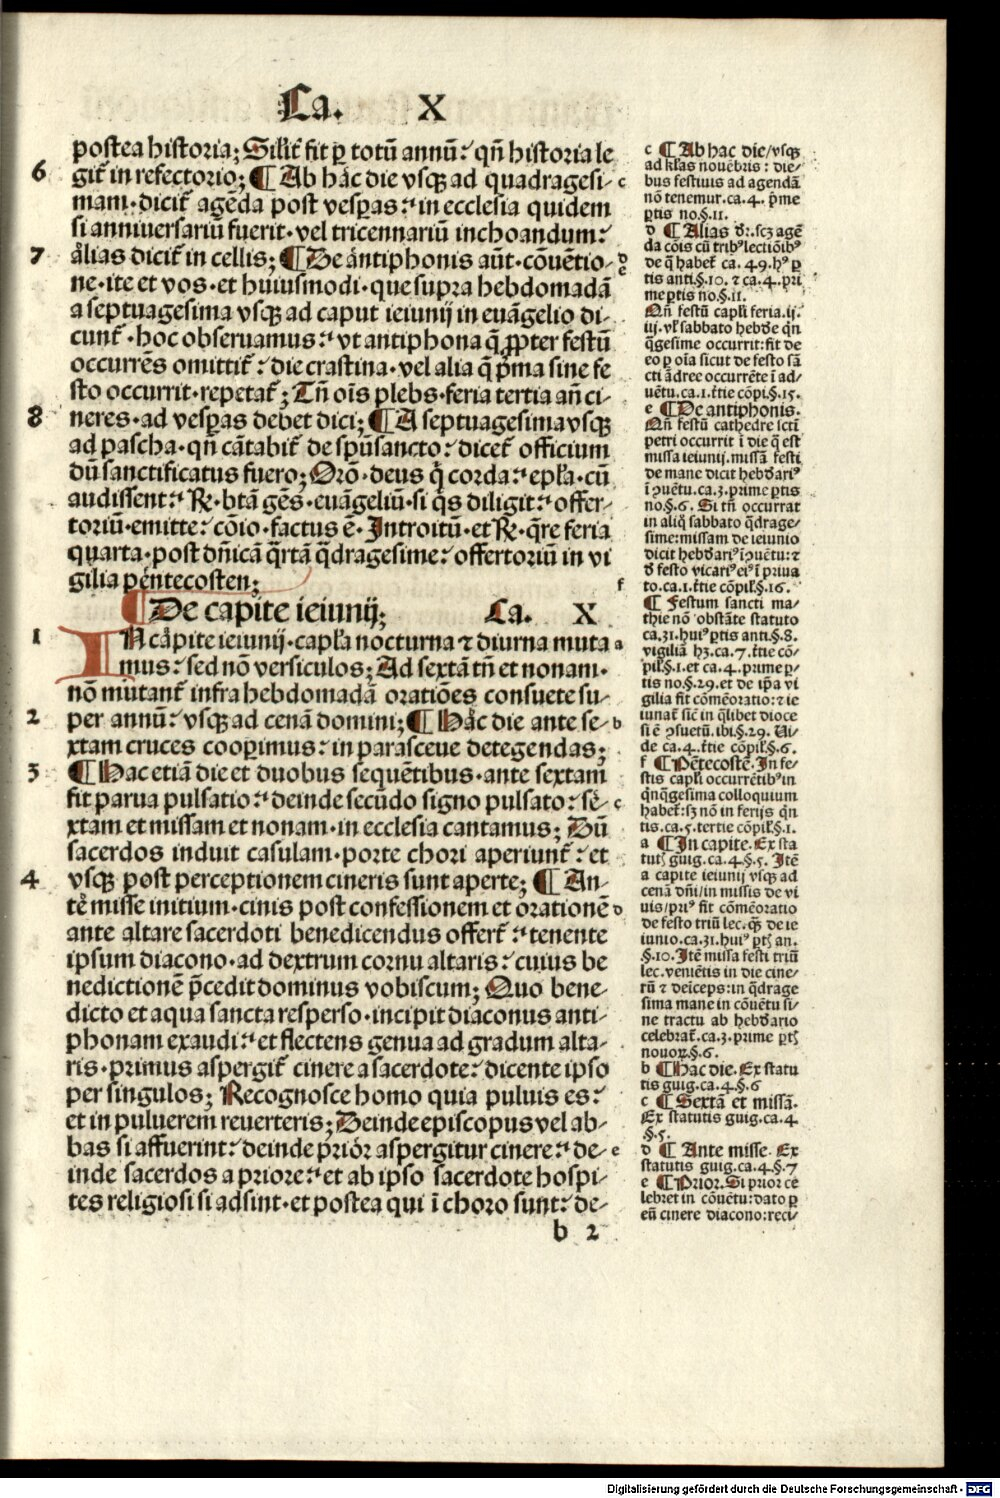 Ca. X
postea historia; Silit̃ fit ꝑ totũ annũ: qñ historia le
6 git̃ in refectorio; ¶ Ab hac die vsqꝫ ad quadragesi- c
mam. dicit̃ agẽda post vesꝑas: in ecclesia quidem
si anniuersariũ fuerit. vel tricennariũ inchoandum:
7 alias dicit̃ in cellis; ¶ De antiphonis aũt. cõuẽtio- d e
ne. ite et vos. et huiusmodi. que supra hebdomadã
a septuagesima vsqꝫ ad caput ieiunij in euãgelio di-
cunt̃. hoc obseruamus: vt antiphona q̃ ꝓpter festũ
occurrẽs omittit̃: die crastina. vel alia q̃ p̃ma sine fe
sto occurrit. repetat̃; Tñ oĩs plebs. feria tertia añ ci-
8 neres. ad vesꝑas debet dici; ¶ A septuagesima vsqꝫ
ad pascha. qñ cãtabit̃ de spũsancto: dicet̃ officium
dũ sanctificatus fuero; Orõ. deus q̃ corda: epl̃a. cũ
audissent: ꝶ. btã gẽs. euãgeliũ. si q̃s diligit: offer-
toriũ. emitte: cõio. factus ẽ. Introitũ. et ꝶ. q̃re feria
quarta. post dñicã q̃rtã q̃dragesime: offertoriũ in vi
gilia pẽntecosten; f
¶ De capite ieiunij; Ca. X
1 IN cãpite ieiunij. capl̃a nocturna ⁊ diurna muta a
mus: sed nõ versiculos; Ad sextã tñ et nonam.
nõ mutant̃ infra hebdomadã oratiões consuete su-
2 per annũ: vsqꝫ ad cenã domini; ¶ Hac die ante se- b
xtam cruces cooꝑimus: in parasceue detegendas;
3 ¶ Hac etiã die et duobus sequẽtibus. ante sextam
fit parua pulsatio: deinde secũdo signo pulsato: se- c
xtam et missam et nonam. in ecclesia cantamus; Dũ
sacerdos induit casulam. porte chori aperiunt̃: et
4 vsqꝫ post perceptionem cineris sunt aperte; ¶ An-
te misse initium. cinis post confessionem et orationẽ d
ante altare sacerdoti benedicendus offert̃: tenente
ipsum diacono. ad dextrum cornu altaris: cuius be
nedictionẽ p̃cedit dominus vobiscum; Quo bene-
dicto et aqua sancta resperso. incipit diaconus anti-
phonam exaudi: et flectens genua ad gradum alta-
ris. primus aspergit̃ cinere a sacerdote: dicente ipso
per singulos; Recognosce homo quia puluis es:
et in puluerem reuerteris; Deinde episcopus vel ab-
bas si affuerint: deinde prior aspergitur cinere: de- e
inde sacerdos a priore: et ab ipso sacerdote hospi-
tes religiosi si adsint. et postea qui ĩ choro sunt: de-
b 2
c ¶ Ab hac die/vsqꝫ
ad kl̃as nouẽbris: die-
bus festiuis ad agendã
nõ tenemur. ca. 4. p̃me
ꝑtis no. §. 11.
d ¶ Alias d̃:. scꝫ agẽ
da cõis cũ tribꝰ lectiõibꝰ
de q̃ habet̃ ca. 49. hꝰ ꝑ
tis anti. §. 10. ⁊ ca. 4. pri
me ꝑtis no. §. 11.
Qñ festũ capl̃i feria. ij.
iij. vl̃ sabbato hebde qñ
q̃gesime occurrit: fit de
eo ꝑ oĩa sicut de festo sã
cti ãdree occurrẽte ĩ ad-
uẽtu. ca. 1. t̃tie cõpi. §. 15.
e ¶ De antiphonis.
Qñ festũ cathedre sctĩ
petri occurrit ĩ die q̃ est
missa ieiunij. missã festi
de mane dicit hebdariꝰ
ĩ ↄuẽtu. ca. 3. prime ꝑtis
no. §. 6. Si tñ occurrat
in aliq̃ sabbato q̃drage-
sime: missam de ieiunio
dicit hebdariꝰ ĩ ↄuẽtu: ⁊
d̃ festo vicariꝰ eiꝰ ĩ priua
to. ca. 1. t̃tie cõpil̃. §. 16.
¶ Festum sancti ma-
thie nõ obstãte statuto
ca. 31. huiꝰ ꝑtis anti. §. 8.
vigiliã hꝫ. ca. 7. t̃tie cõ-
pil̃. §. 1. et ca. 4. prime ꝑ-
tis no. §. 29. et de ip̃a vi
gilia fit cõmẽoratio: ⁊ ie
iunat̃ sic̃ in q̃libet dioce
si ẽ ↄsuetũ. ibi. §. 29. Ui-
de ca. 4. t̃tie cõpil̃. §. 6.
f ¶ Pẽtecostẽ. In fe-
stis capl̃i occurrẽtibꝰ in
q̃nq̃gesima colloquium
habet̃: sꝫ nõ in ferijs qñ
tis. ca. 5. tertie cõpil̃. §. 1.
a ¶ In capite. Ex sta
tutꝭ guig. ca. 4. §. 5. Itẽ
a capite ieiunij vsqꝫ ad
cenã dñi/in missis de vi
uis/priꝰ fit cõmẽoratio
de festo triũ lec. qꝫ de ie
iunio. ca. 31. huiꝰ ꝑtꝭ an.
§. 10. Itẽ missa festi triũ
lec. veniẽtis in die cine-
rũ ⁊ deĩceps: in q̃drage
sima mane in cõuẽtu si-
ne tractu ab hebdario
celebrat̃. ca. 3. prime ꝑtꝭ
nouoꝝ. §. 6.
b ¶ Hac die. Ex statu
tis guig. ca. 4. §. 6
c ¶ Sextã et missã.
Ex statutis guig. ca. 4.
§. 5.
d ¶ Ante misse. Ex
statutis guig. ca. 4. §. 7
e ¶ Prior. Si prior ce
lebret in cõuẽtu: dato ꝑ
eũ cinere diacono: reci-
Digitalisierung gefördert durch die Deutsche Forschungsgemeinschaft - DFG